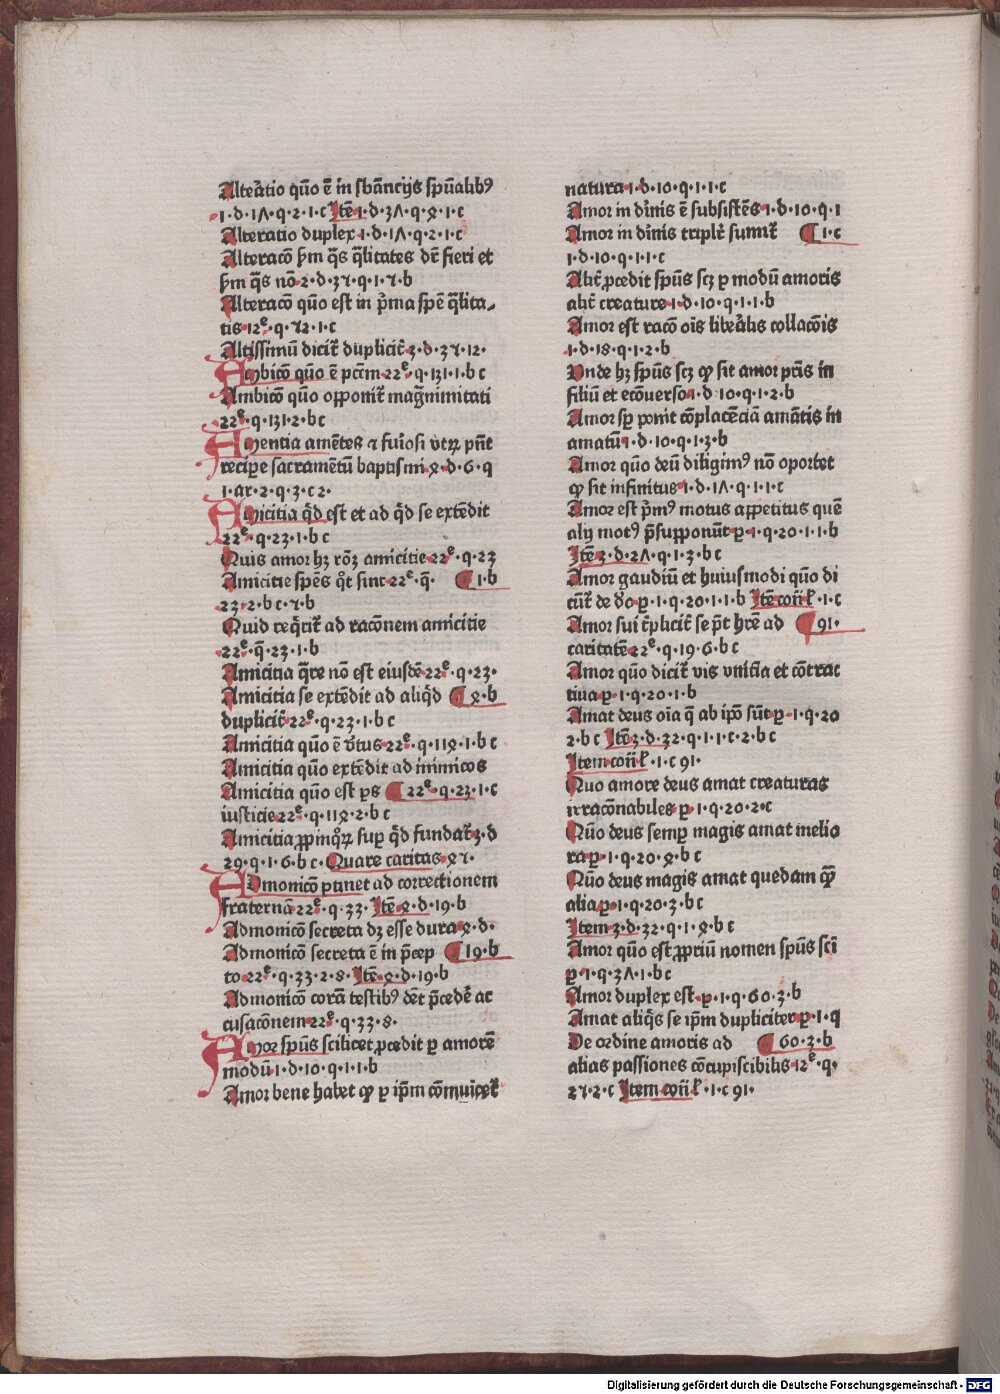 Altea̅tio quo̅ e̅ in sba̅ncijs spu̅alib⁹
·1·d·1ʌ·q·2·1·c Ite̅·1·d·3ʌ·q·ꝝ·1·c
Alteratio duplex·1·d·1ʌ·q·2·1·c
Alteraco̅ ẜm q̅s q̅litates dr̅ fieri et
ẜm q̅s no̅·2·d·3ꝛ·q·1·ꝛ·b
Alteraco̅ quo̅ est in p̅ma spe̅ q̅lita⸗
tis·12ᵉ·q·ꝛ2·1·c
Altissimu̅ dicit̅ duplicit̅·3·d·3ꝛ·12·
Ambico̅ quo̅ e̅ pc̅c̅m·22ᵉ·q·131·1·b c
Ambico̅ quo̅ opponit̅ mag̅nimitati
22ᵉ·q·131·2·bc
Amentia ame̅tes ⁊ fui̅osi vtꝝ pn̅t
recipe sacrame̅tu̅ baptismi·ꝝ·d·6·q
1·ar·2·q·3·c 2·
Amicitia q̅d est et ad q̅d se exte̅dit
22ᵉ·q·23·1·b c
Quis amor hꝫ ro̅ꝫ amicitie·22ᵉ·q·23
Amicitie spe̅s q̊t sint·22ᵉ·q̅· ¶ 1·b
23·2·b c·ꝛ·b
Quid req̅rit̅ ad raco̅nem amicitie
22ᵉ·q̅·23·1·b
Amicitia q̅re no̅ est eiusde̅·22ᵉ·q·23·
Amicitia se exte̅dit ad aliq̅d ¶ ꝝ·b
duplicit̅·22ᵉ·q·23·1·b c
Amicitia quo̅ e̅ v̅tus·22ᵉ·q·11ꝝ·1·b c
Amicitia quo̅ exte̅dit ad inimicos
Amicitia quo̅ est ps ¶ 22ᵉ·q·23·1·c
iusticie·22ᵉ·q·11ꝝ·2·b c
Amicitia ꝓpinq̊ꝝ sup q̅d fundat̅·3·d
29·q·1·6·b c· Quare caritas·ꝝꝛ·
Admonico̅ ꝑtinet ad correctionem
fraterna̅·22ᵉ·q·33· Ite̅·ꝝ·d·19·b
Admonico̅ secreta dꝫ esse dura·ꝝ·d·
Admonico̅ secreta e̅ in p̅cep ¶ 19·b
to·22ᵉ·q·33·2·8· Ite̅·ꝝ·d·19·b
Admonico̅ cora̅ testib⁹ de̅t p̅cede̅ ac
cusaco̅nem·22ᵉ·q·33·8·
Amor spu̅s scilicet ꝓcedit ꝑ amore̅
modu̅·1·d·10·q·1·1·b
Amor bene habet ꝙ ꝑ ip̅m co̅mu̅icet̅
natura·1·d·10·q·1·1·c
Amor in di̅nis e̅ subsiste̅s·1·d·10·q·1
Amor in di̅nis triplr̅ sumit̅ ¶ 1·c
1·d·10·q·1·1·c
Alit̅ ꝓcedit spu̅s scꝫ ꝑ modu̅ amoris
alit̅ creature·1·d·10·q·1·1·b
Amor est raco̅ oi̅s libea̅lis collaco̅is
1·d·18·q·1·2·b
Unde hꝫ spu̅s scꝫ ꝙ sit amor pr̅is in
filiu̅ et eco̅uerso·1·d·10·q·1·2·b
Amor sp̅ ponit co̅place̅cia̅ ama̅tis in
amatu̅·1·d·10·q·1·3·b
Amor quo̅ deu̅ diligim⁹ no̅ oportet
ꝙ sit infinitus·1·d·1ʌ·q·1·1·c
Amor est p̅m⁹ motus appetitus que̅
alij mot⁹ p̅supponu̅t·ꝑ·1·q·20·1·1·b
Ite̅·3·d·2ʌ·q·1·3·b c
Amor gaudiu̅ et huiusmodi quo̅ di
cu̅t̅ de do̅·ꝑ·1·q·20·1·1·b Ite̅ coi̅i·k̅·1·c
Amor sui t̅plicit̅ se pt̅ hr̅e ad ¶ 91·
caritate̅·22ᵉ·q·19·6·b c
Amor quo̅ dicit̅ vis vniti̅a et co̅trac
tiua·ꝑ·1·q·20·1·b
Amat deus oi̅a q̅ ab ip̅o su̅t·ꝑ·1·q·20
2·b c Ite̅·3·d·32·q·1·1·c·2·b c
Item coi̅i·k̅·1·c 91·
Quo amore deus amat creaturas
irraco̅nabiles·ꝑ·1·q·20·2·c
Quo̅ deus semꝑ magis amat melio
ra·ꝑ·1·q·20·ꝝ·b c
Quo̅ deus magis amat quedam q̅ꝫ
alia·ꝑ·1·q·20·3·bc
Item·3·d·32·q·1·ꝝ·b c
Amor quo̅ est ꝓpriu̅ nomen spu̅s sc̅i
ꝑ·1·q·3ʌ·1·b c
Amor duplex est·ꝑ·1·q·60·3·b
Amat aliq̅s se ip̅m dupliciter·ꝑ·1·q
De ordine amoris ad ¶ 60·3·b
alias passiones co̅cupiscibilis·12ᵉ·q·
2ꝛ·2·c Item coi̅i·k̅·1·c 91·
Digitalisierung gefördert durch die Deutsche Forschungsgemeinschaft - DFG